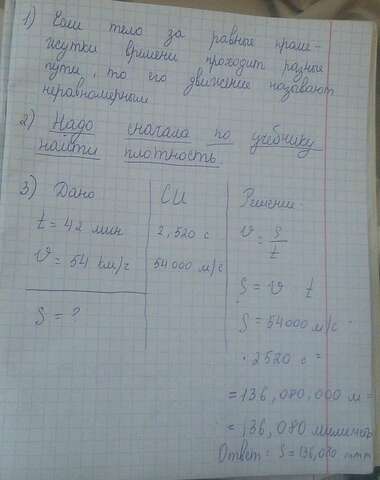 1) Если тело за равные проме-
жутки времени проходит разные
пути, то его движение называют
неравномерным.
2) Надо сначала по учебнику
найти плотность.
3) Дано СИ Решение:
t = 42 мин 2,520 с v = S/t
v = 54 км/ч 54000 м/с
S = v t
S = ? S = 54000 м/с ·
· 2520 с =
= 136,080,000 м =
= 136,080
Ответ: S = 136,080